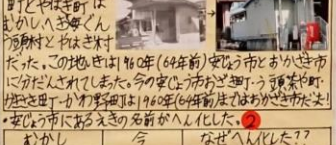 町とやはぎ町は
むかし、へき海ぐん
う頭村とやはぎ村
だった。この地いきは1960年(64年前)安じょう市とおかざき市
に分だんされてしまった。今の安じょう市おざき町・う頭茶や町・
かきさき町・かわ野町は1960年(64年前)までおかざき市だ
・安じょう市にあるえきの名前がへん化した。②
むかし 今 なぜへん化した??